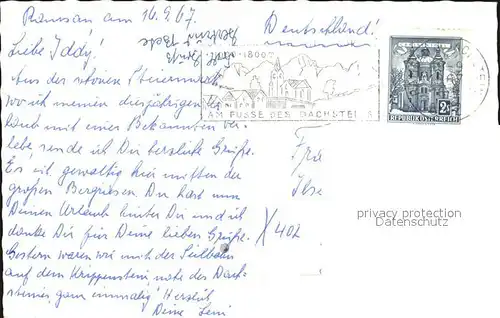 Ramsau am 16.9.67.
Deutschland!
Liebe Iddy!
Aus der schönen Steiermark
wo ich meinen diesjährigen Ur-
laub mit einer Bekannten ver-
lebe sende ich Dir herzliche Grüße.
Es ist gewaltig hier mitten der
großen Bergriesen. Du hast nun
Deinen Urlaub hinter Dir und ich
danke Dir für Deine lieben Grüße.
Gestern waren wir mit der Seilbahn
auf dem Krippenstein, nahe des Dach-
steines, ganz einmalig! Herzlich
Deine Leni
1800
AM FUSSE DES DACHSTEIN
2
REPUBLIK ÖSTERREICH
Fra
Ilse
X 402
privacy protection
Datenschutz